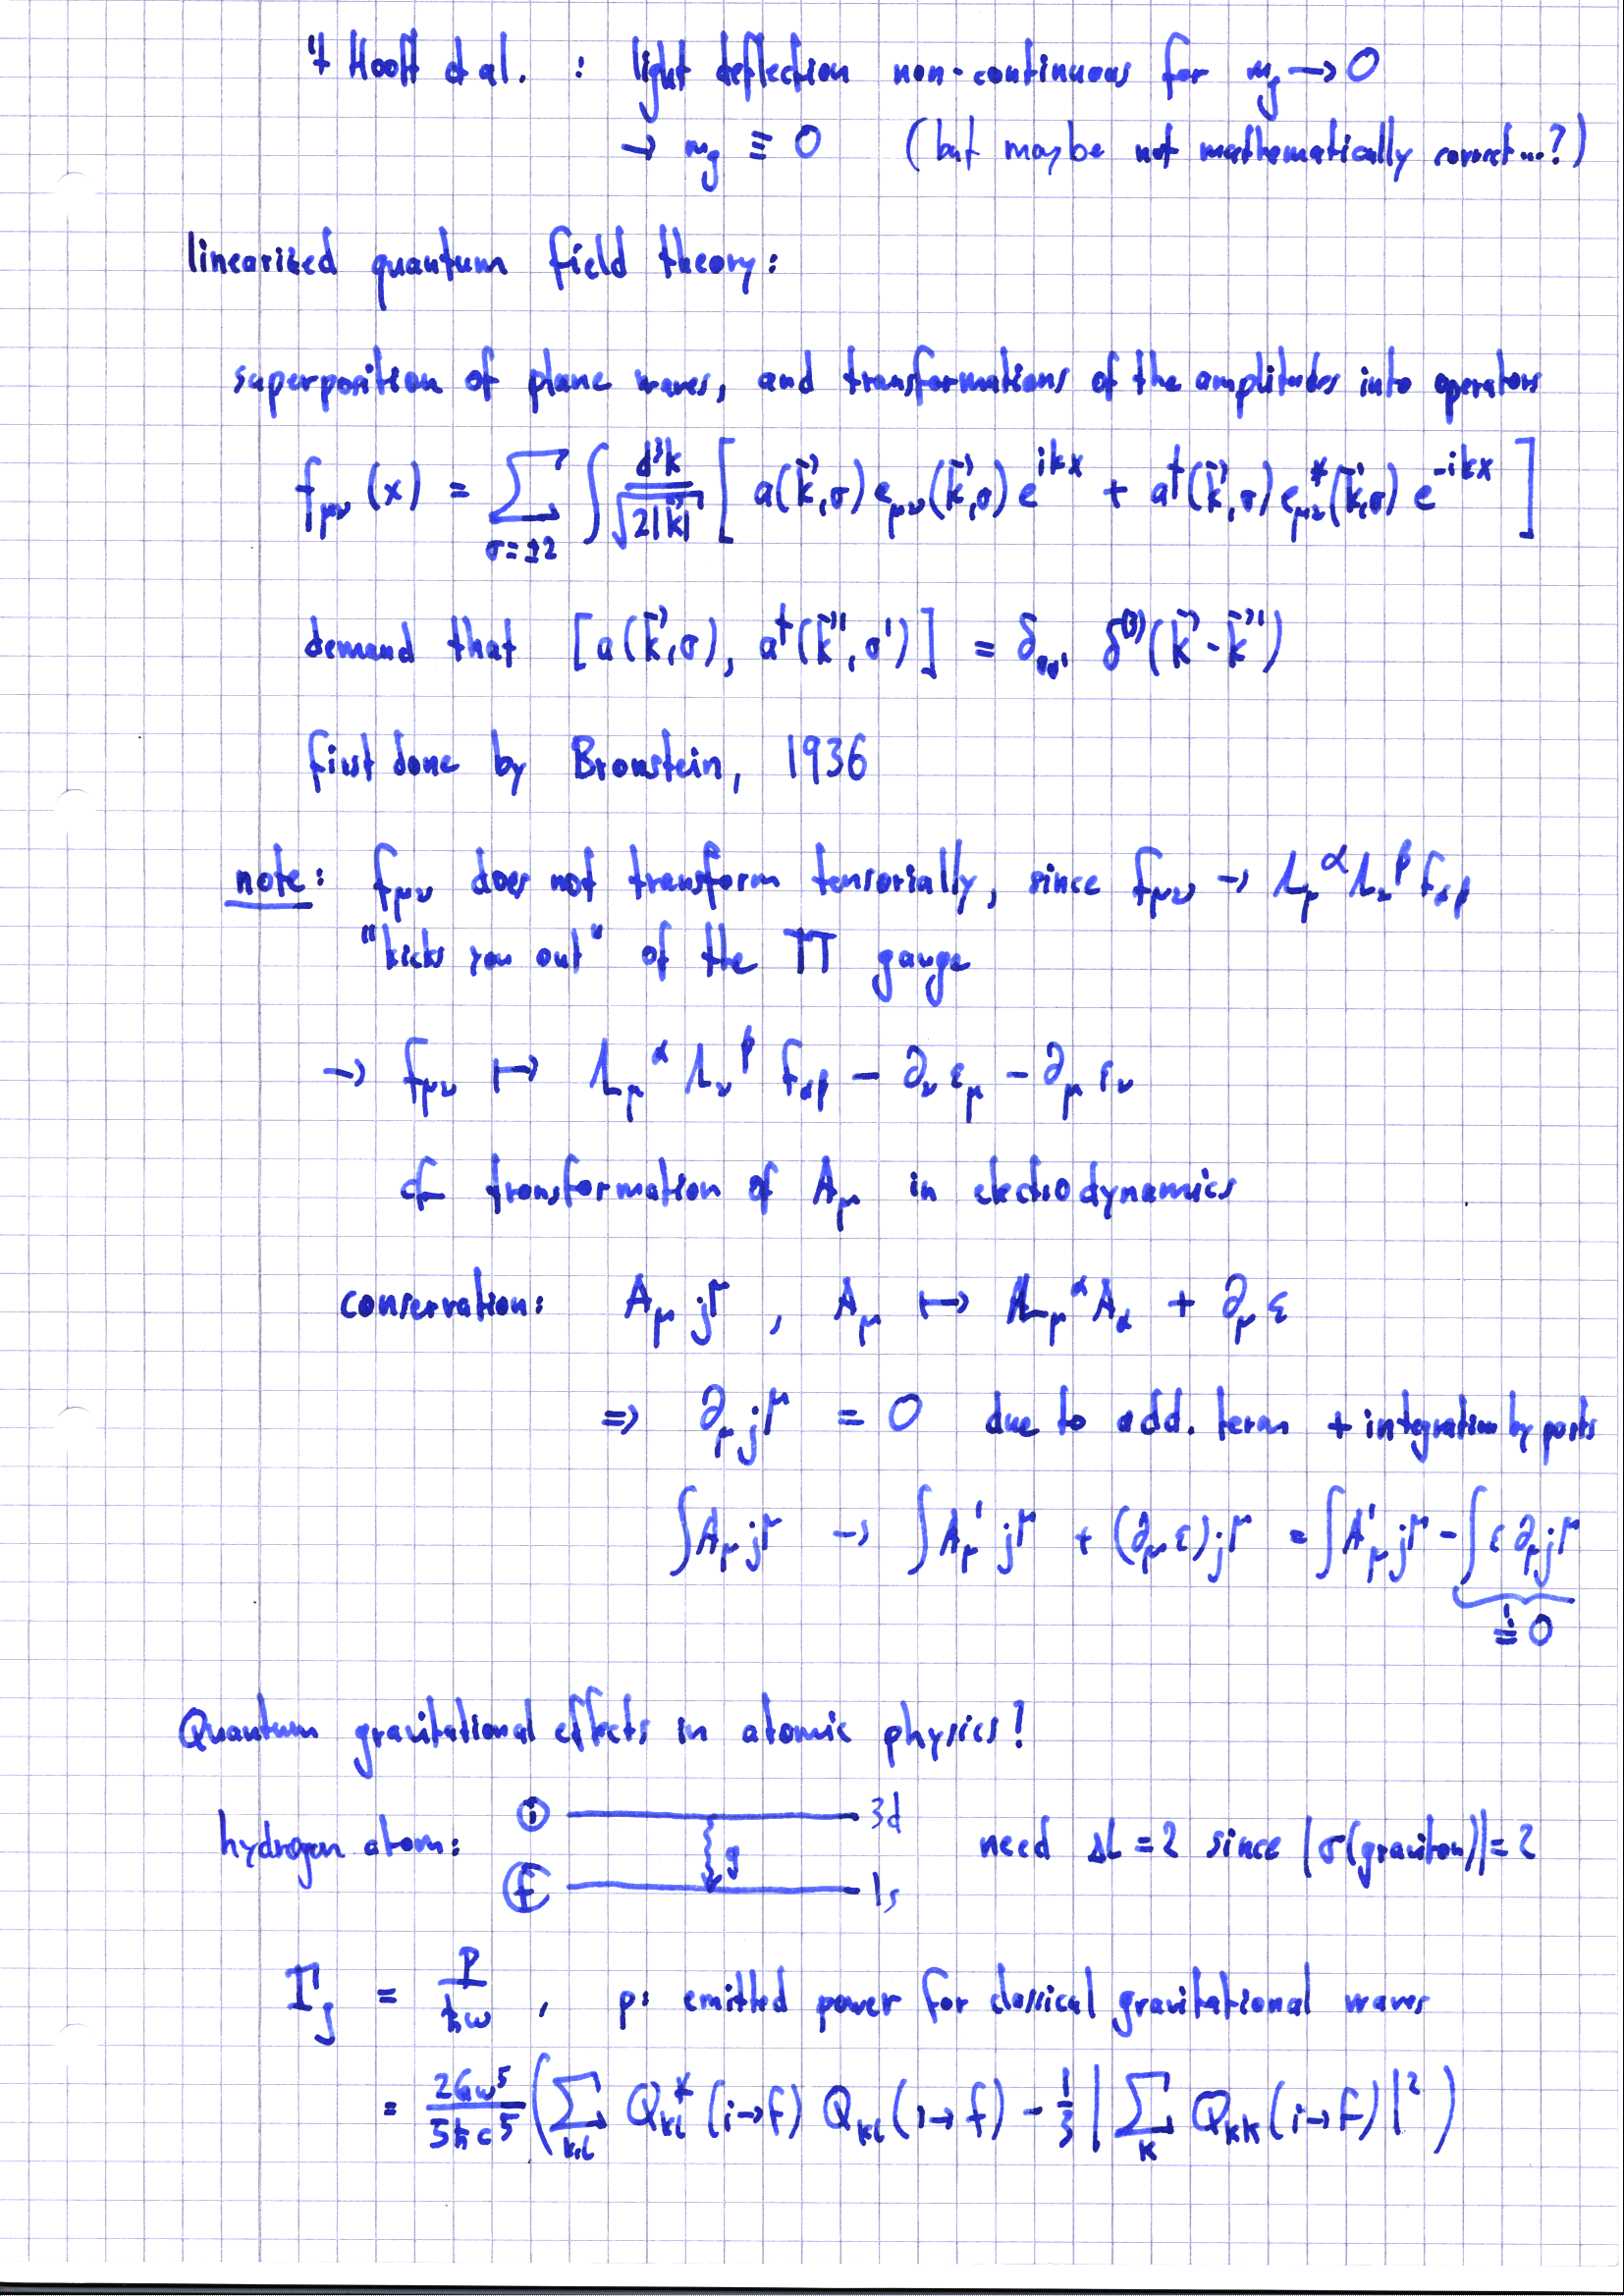 't Hooft et al. : light deflection non-continuous for m_g → 0
→ m_g ≡ 0 (but maybe not mathematically correct...?)
linearized quantum field theory:
superposition of plane waves, and transformations of the amplitudes into operators
f_μν (x) = ∑_{σ=±2} ∫ d³k/√(2|k⃗|) [ a(k⃗,σ) e_μν(k⃗,σ) e^{ikx} + a†(k⃗,σ) e*_μν(k⃗,σ) e^{-ikx} ]
demand that [a(k⃗,σ), a†(k⃗',σ')] = δ_σσ' δ^(3)(k⃗-k⃗')
first done by Bronstein, 1936
note: f_μν does not transform tensorially, since f_μν → Λ_μ^α Λ_ν^β f_αβ
"kicks you out" of the TT gauge
→ f_μν ↦ Λ_μ^α Λ_ν^β f_αβ - ∂_ν ε_μ - ∂_μ ε_ν
cf transformation of A_μ in electrodynamics
conservation: A_μ j^μ , A_μ ↦ Λ_μ^α A_α + ∂_μ ε
⇒ ∂_μ j^μ = 0 due to add. term + integration by parts
∫A_μ j^μ → ∫A_μ' j^μ + (∂_μ ε) j^μ = ∫A'_μ j^μ - ∫ε ∂_μ j^μ
≐ 0
Quantum gravitational effects in atomic physics!
hydrogen atom: i 3d g f 1s need ΔL = 2 since |σ(graviton)| = 2
Γ_g = P/ħω , P: emitted power for classical gravitational waves
= 2Gω⁵/5ħc⁵ ( ∑_{k,l} Q*_kl (i→f) Q_kl (i→f) - 1/3 | ∑_k Q_kk (i→f) |² )